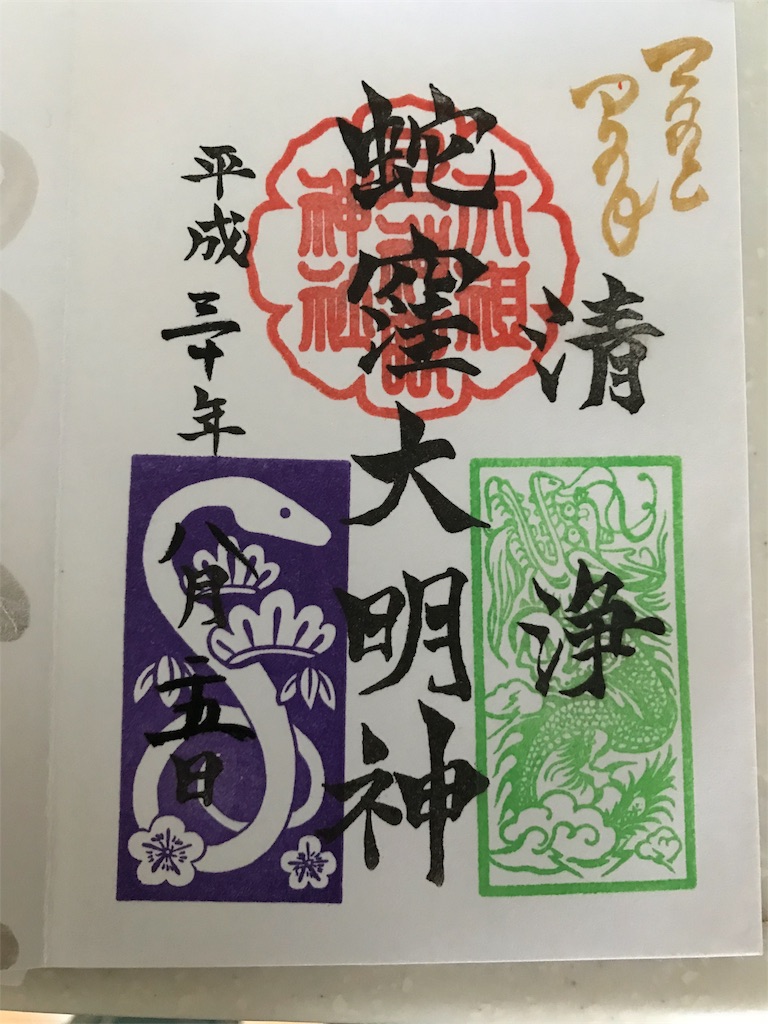 清浄
天祖
蛇窪大明神
神社
平成三十年八月二五日